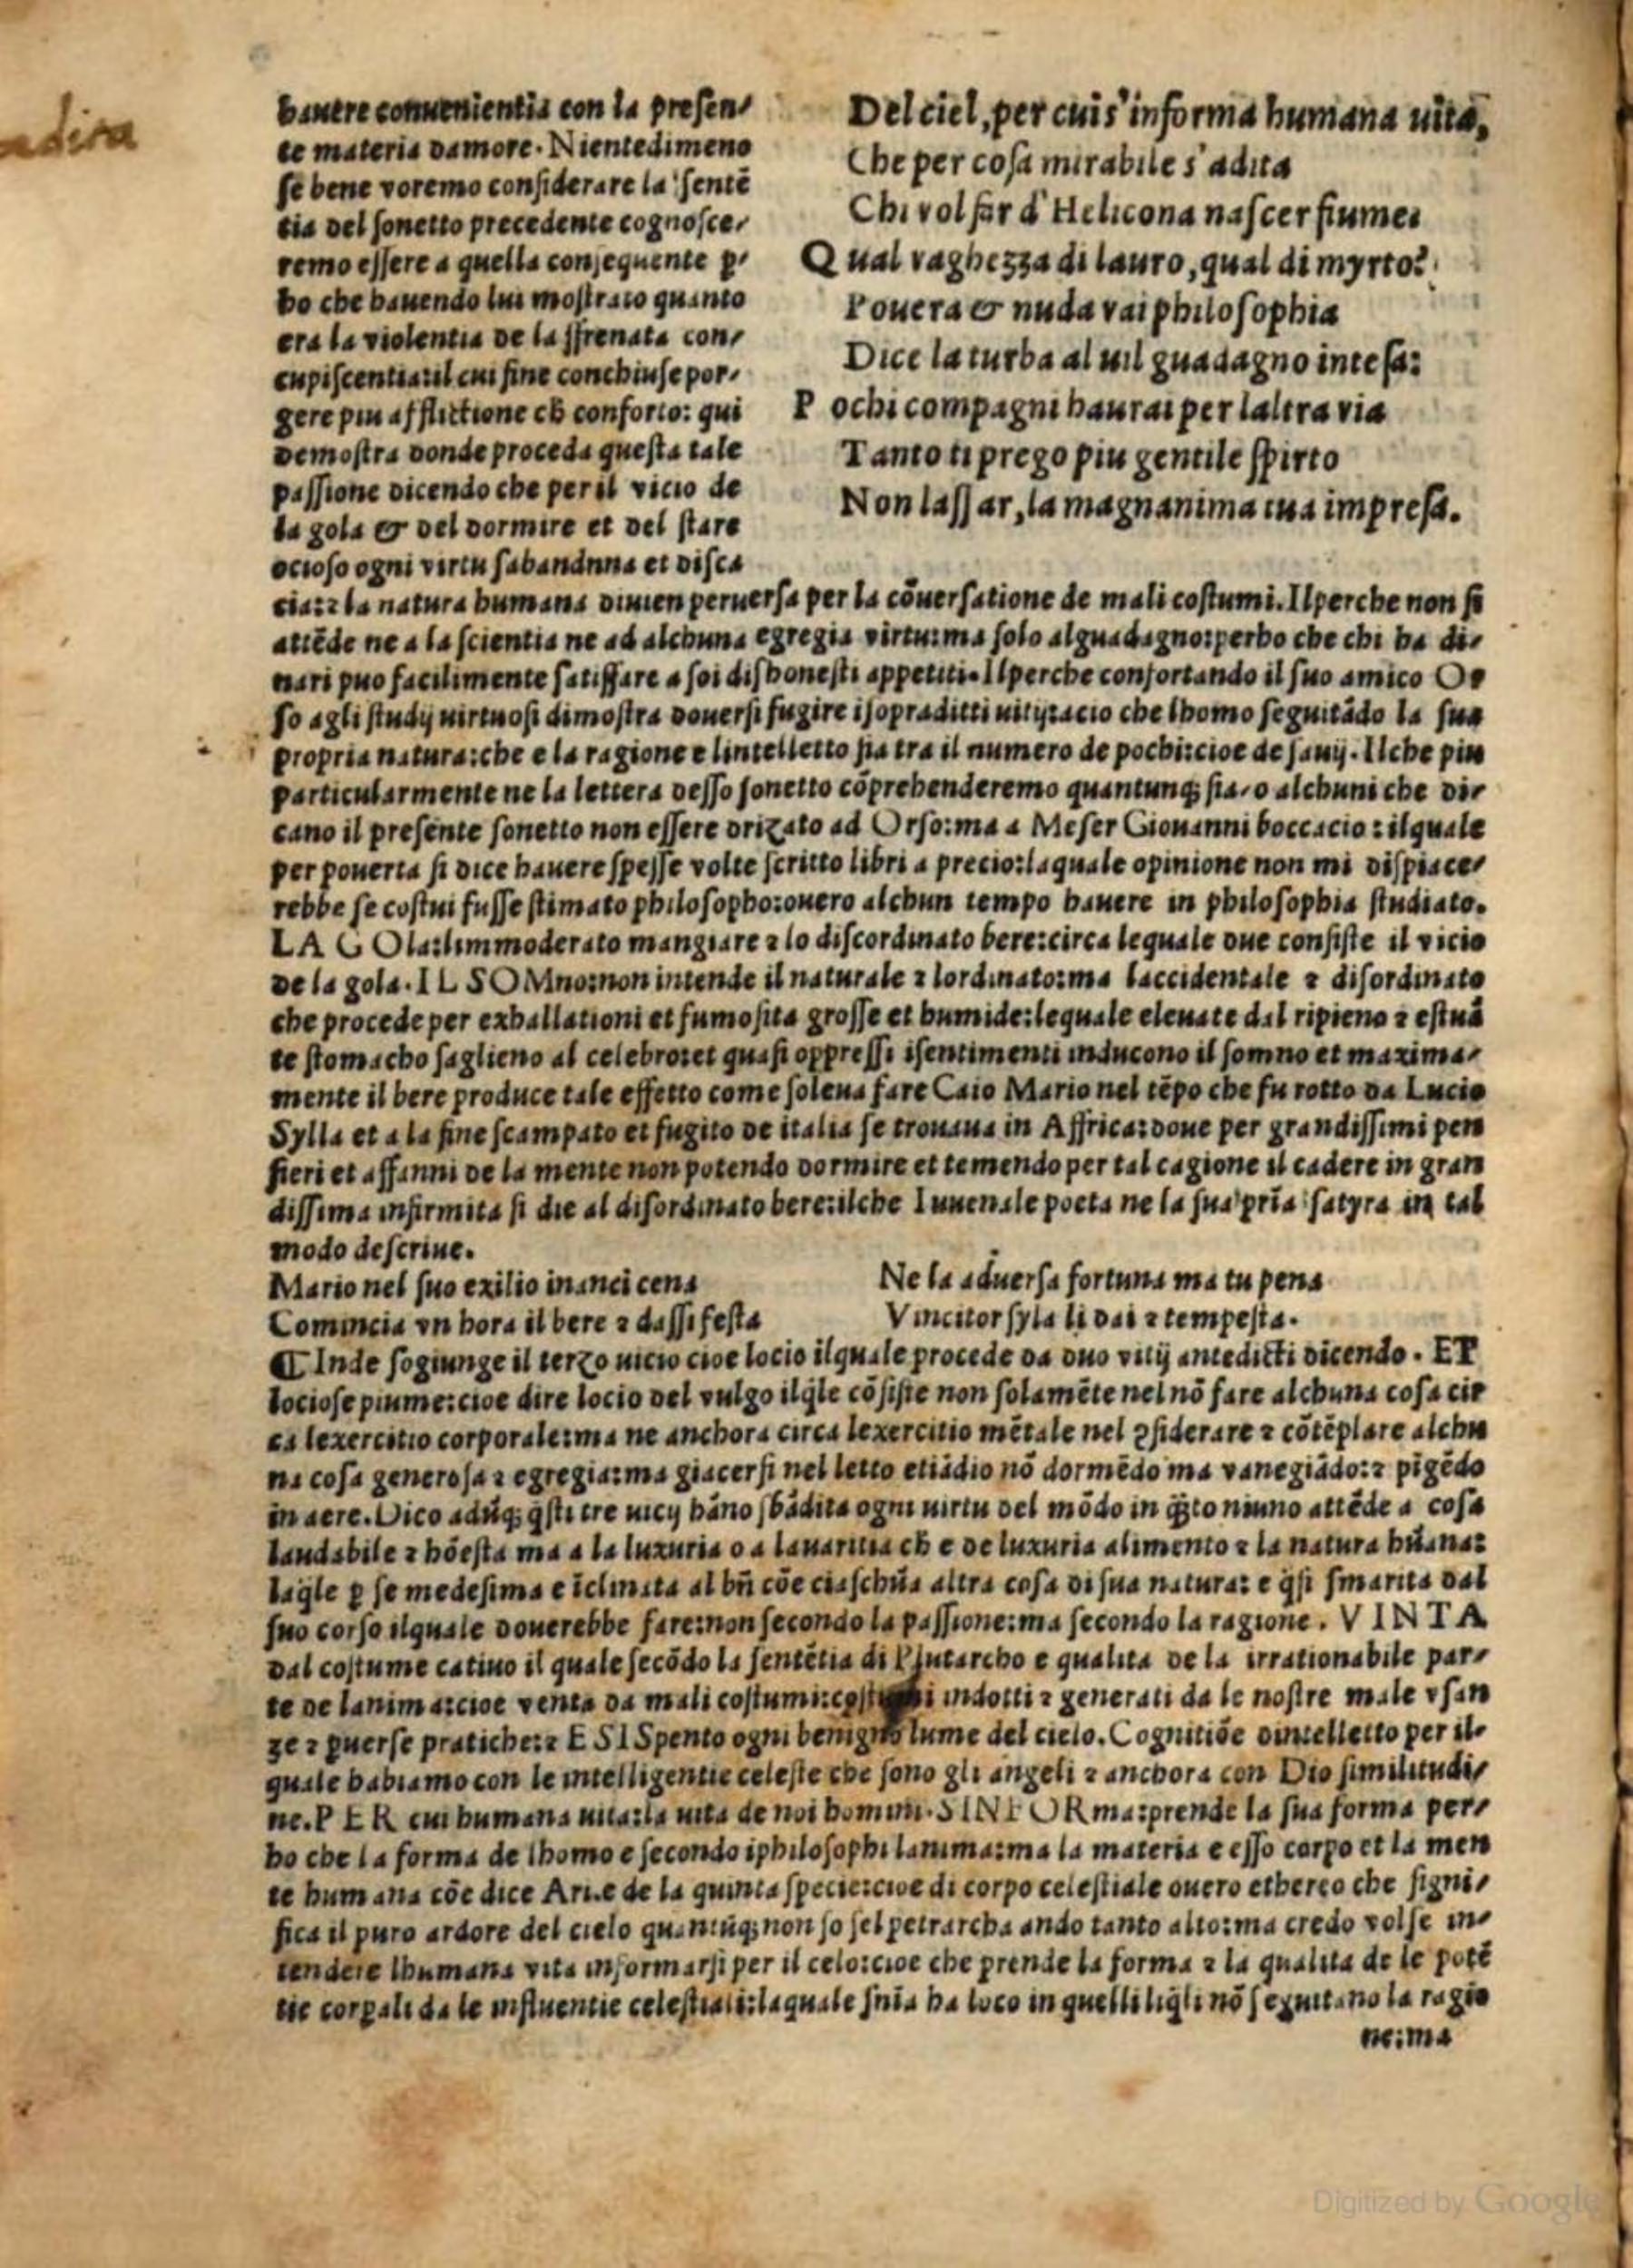 adita
hauere conuenientia con la presen/
te materia damore. Nientedimeno
se bene voremo considerare la sentē
tia del sonetto precedente cognosce/
remo essere a quella consequente p/
ho che hauendo lui mostrato quanto
era la violentia de la sfrenata con/
cupiscentia:il cui fine conchiuse por/
gere piu afflictione ch conforto: qui
demostra donde proceda questa tale
passione dicendo che per il vicio de
la gola & del dormire et del stare
ocioso ogni virtu sabandnna et disca
Del ciel, per cui s'informa humana uita,
Che per cosa mirabile s'adita
Chi vol far d'Helicona nascer fiume:
Qual vaghezza di lauro, qual di myrto?
Pouera & nuda vai philosophia
Dice la turba al uil guadagno intesa:
Pochi compagni haurai per laltra via
Tanto ti prego piu gentile spirto
Non lassar, la magnanima tua impresa.
cia:⁊ la natura humana diuien peruersa per la cōuersatione de mali costumi. Ilperche non si
attēde ne a la scientia ne ad alchuna egregia virtu:ma solo alguadagno:perho che chi ha di/
nari puo facilimente satiffare a soi dishonesti appetiti. Ilperche confortando il suo amico Or
so agli studij uirtuosi dimostra douersi fugire isopraditti uitij:acio che lhomo seguitādo la sua
propria natura:che e la ragione e lintelletto sia tra il numero de pochi:cioe de sauij. Ilche piu
particularmente ne la lettera desso sonetto cōprehenderemo quantunq; sia/o alchuni che di/
cano il presente sonetto non essere drizato ad Orso:ma a Meser Giouanni boccacio:ilquale
per pouerta si dice hauere spesse volte scritto libri a precio:laquale opinione non mi dispiace/
rebbe se costui fusse stimato philosopho:ouero alchun tempo hauere in philosophia studiato.
LA GOla:limmoderato mangiare ⁊ lo discordinato bere:circa lequale due consiste il vicio
de la gola. IL SOMno:non intende il naturale ⁊ lordinato:ma laccidentale ⁊ disordinato
che procede per exhallationi et fumosita grosse et humide:lequale eleuate dal ripieno ⁊ estuā
te stomacho saglieno al celebro:et quasi oppressi isentimenti inducono il somno et maxima/
mente il bere produce tale effetto come soleua fare Caio Mario nel tēpo che fu rotto da Lucio
Sylla et a la fine scampato et fugito de italia se trouaua in Affrica:doue per grandissimi pen
sieri et affanni de la mente non potendo dormire et temendo per tal cagione il cadere in gran
dissima infirmita si die al disordinato bere:ilche Iuuenale poeta ne la sua pria satyra in tal
modo descriue.
Mario nel suo exilio inanci cena
Comincia vn hora il bere ⁊ dassi festa
Ne la aduersa fortuna ma tu pena
Vincitor syla li dai ⁊ tempesta.
¶ Inde sogiunge il terzo uicio cioe locio ilquale procede da duo vitij antedicti dicendo. ET
lociose piume:cioe dire locio del vulgo ilq̄le cōsiste non solamēte nel nō fare alchuna cosa cir
ca lexercitio corporale:ma ne anchora circa lexercitio mētale nel ꝯsiderare ⁊ cōtēplare alchu
na cosa generosa ⁊ egregia:ma giacersi nel letto etiādio nō dormēdo ma vanegiādo:⁊ pigēdo
in aere. Dico adūq; q̄sti tre uicij hāno sbādita ogni uirtu del mōdo in q̄to niuno attēde a cosa
laudabile ⁊ hōesta ma a la luxuria o a lauaritia ch e de luxuria alimento ⁊ la natura hūana:
laq̄le ꝑ se medesima e īclinata al bn̄ cōe ciaschūa altra cosa di sua natura: e q̄si smarita dal
suo corso ilquale douerebbe fare:non secondo la passione:ma secondo la ragione. VINTA
dal costume catiuo il quale secōdo la sentētia di Plutarcho e qualita de la irrationabile par/
te de lanima:cioe venta da mali costumi: indotti ⁊ generati da le nostre male vsan
ze ⁊ ꝑuerse pratiche:⁊ E SI Spento ogni benigno lume del cielo. Cognitiōe dintelletto per il/
quale habiamo con le intelligentie celeste che sono gli angeli ⁊ anchora con Dio similitudi/
ne. PER cui humana uita:la uita de noi homini. SINFORma:prende la sua forma per/
ho che la forma de lhomo e secondo iphilosophi lanima:ma la materia e esso corpo et la men
te humana cōe dice Ari.e de la quinta specie:cioe di corpo celestiale ouero ethereo che signi/
fica il puro ardore del cielo quantūq; non so sel petrarcha ando tanto alto:ma credo volse in/
tendere lhumana vita informarsi per il celo:cioe che prende la forma ⁊ la qualita de le potē
tie corꝑali da le influentie celestiali:laquale sn̄ia ha loco in quelli liq̄li nō seguitano la ragio
ne:ma
Digitized by Google